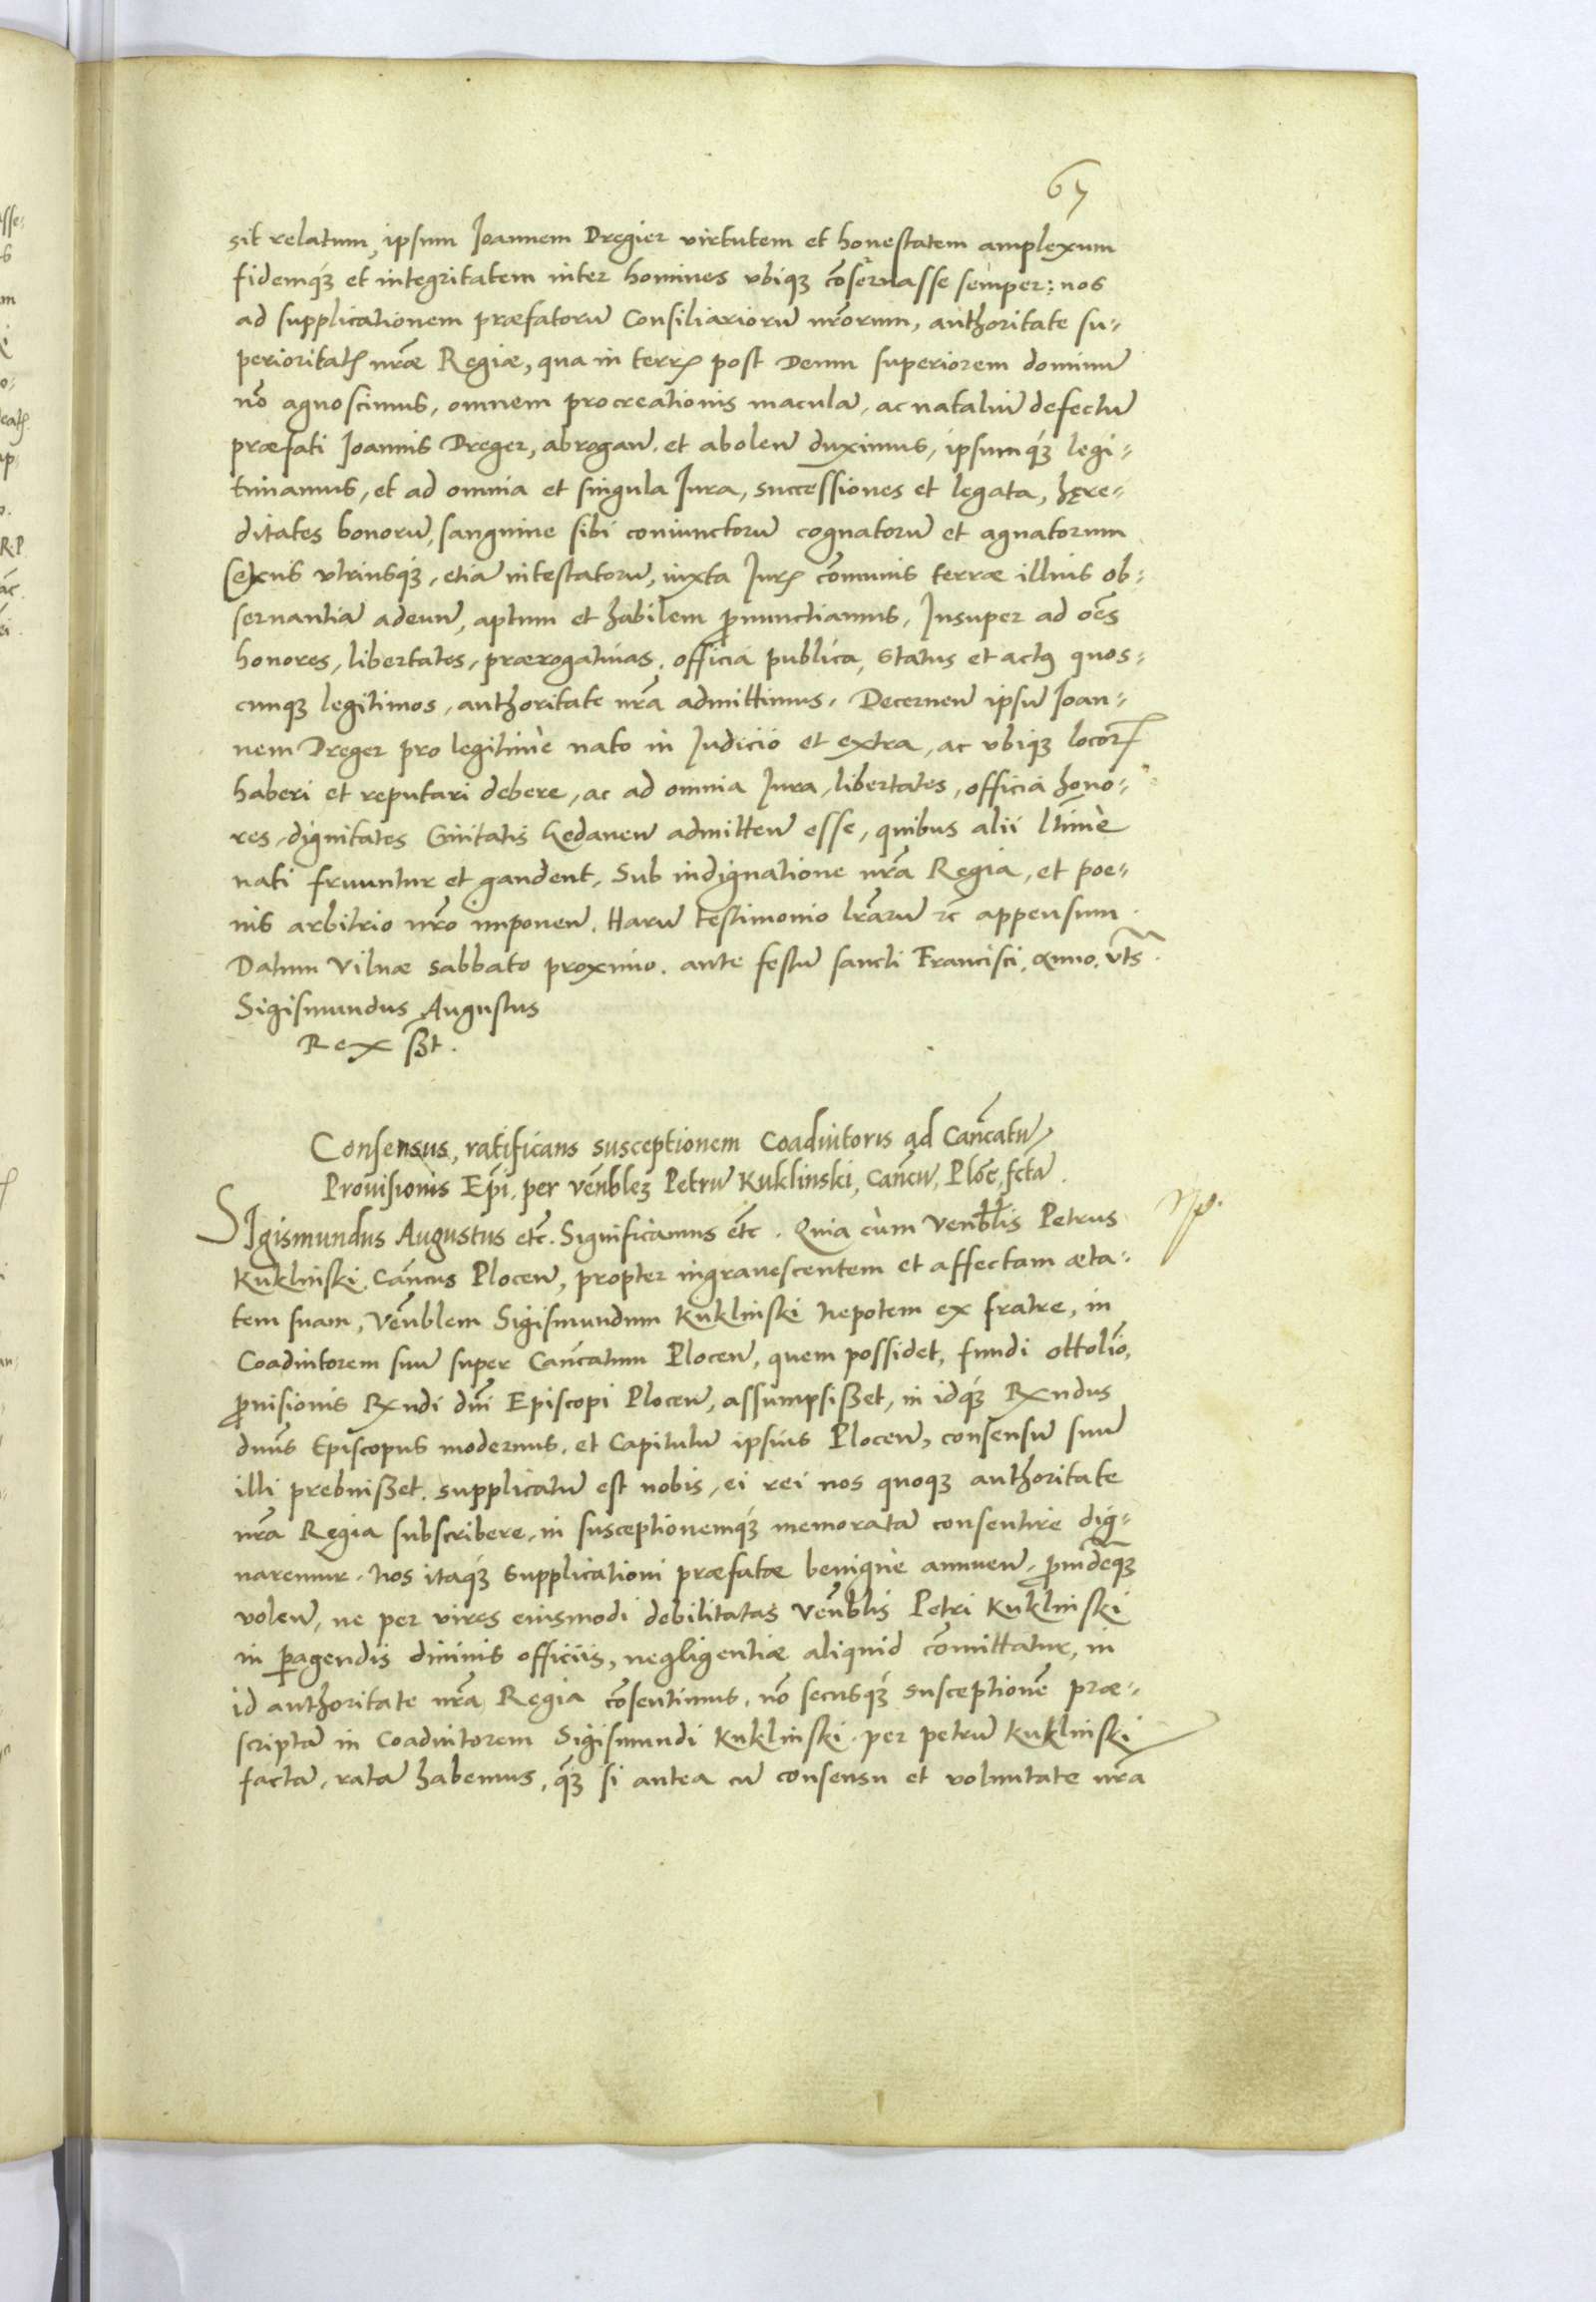 67
sit relatum, ipsum Joannem Dregier virtutem et honestatem amplexum
fidemq́ȝ et integritatem inter homines vbiqȝ cõseruasse semper: nos
ad supplicationem præfatorũ Consiliariorũ nr̃orum, authoritate su-
perioritatꝭ nr̃æ Regiæ, qua in terrꝭ post Deum superiorem dominũ
nõ agnoscimus, omnem procreationis maculã, ac nataliũ defectũ
præfati Joannis Dreger, abrogan̄. et abolen̄ duximus, ipsumq́ȝ legi-
timamus, et ad omnia et singula Jura, successiones et legata, hęre-
ditates bonorũ, sanguine sibi coniunctorũ cognatorũ et agnatorum
sexus vtriusqȝ, etiã intestatorũ, iuxta Jurꝭ cõmunis terræ illius ob-
seruantiã adeun̄, aptum et habilem ꝓnunctiamus, Insuper ad oẽs
honores, libertates, prærogatiuas, officia publica, status et actꝰ quos-
cunqȝ legitimos, authoritate nr̃a admittimus. Decernen̄ ipsũ Joan-
nem Dreger pro legitimè nato in Judicio et extra, ac vbiqȝ locorꝭ
haberi et reputari debere, ac ad omnia Jura, libertates, officia hono-
res, dignitates Ciuitatis Gedanen̄ admitten̄ esse, quibus alii ltĩmè
nati fruuntur et gaudent, Sub indignatione nr̃a Regia, et poe-
nis arbitrio nr̃o imponen̄. Harũ testimonio lr̃arũ ⁊c̃ appensum.
Datum Vilnæ sabbato proximo. ante festũ sancti Francisci, anno, vts̃.
Sigismundus Augustus
Rex sßt.
Consensus, ratificans susceptionem Coadiutoris ad Cañcatũ
Prouisionis Epĩ, per veñbleȝ Petrũ Kuklinski, Cañcũ, Ploc̃, fctã.
Np.
SIgismundus Augustus etc̃. Significamus etc̃. Quia cum Venb̃lis Petrus
Kuklinski, Cañcus Plocen̄, propter ingrauescentem et affectam æta-
tem suam, Veñblem Sigismundum Kuklinski Nepotem ex fratre, in
Coadiutorem suũ super Cañcatum Plocen̄, quem possidet, fundi ottoliõ,
ꝓuisionis Rx̃ndi dnĩ Episcopi Plocen̄, assumpsißet, in idq́ȝ Rx̃ndus
dnũs Episcopus modernus, et Capitulũ ipsius Plocen̄, consensũ suũ
illi prebuißet. supplicatũ est nobis, ei rei nos quoqȝ authoritate
nr̃a Regia subscribere, in susceptionemq́ȝ memoratã consentire dig-
naremur. Nos itaq́ȝ supplicationi præfatæ benignè annuen̄, ꝓindeqȝ
volen̄, ne per vires eiusmodi debilitatas Veñblis Petri Kuklinski
in ꝑagendis diuinis officiis, negligentiæ aliquid cõmittatur, in
id authoritate nr̃a Regia cõsentimus, nõ secusq́ȝ susceptionẽ præ-
scriptã in Coadiutorem Sigismundi Kuklinski per Petrũ Kuklinski
factã, ratã habemus, q́ȝ si antea cũ consensu et voluntate nr̃a